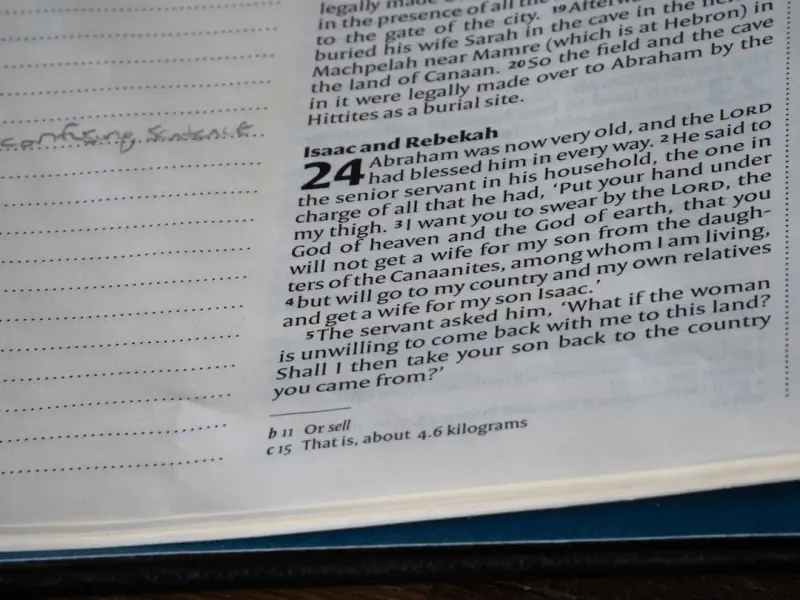 legally made
in the presence of all the
to the gate of the city. 19Afterw
buried his wife Sarah in the cave in the fie
Machpelah near Mamre (which is at Hebron) in
the land of Canaan. 20So the field and the cave
in it were legally made over to Abraham by the
Hittites as a burial site.
confusing sentence
Isaac and Rebekah
24 Abraham was now very old, and the LORD
had blessed him in every way. 2He said to
the senior servant in his household, the one in
charge of all that he had, ‘Put your hand under
my thigh. 3I want you to swear by the LORD, the
God of heaven and the God of earth, that you
will not get a wife for my son from the daugh-
ters of the Canaanites, among whom I am living,
4but will go to my country and my own relatives
and get a wife for my son Isaac.’
5The servant asked him, ‘What if the woman
is unwilling to come back with me to this land?
Shall I then take your son back to the country
you came from?’
b 11 Or sell
c 15 That is, about 4.6 kilograms